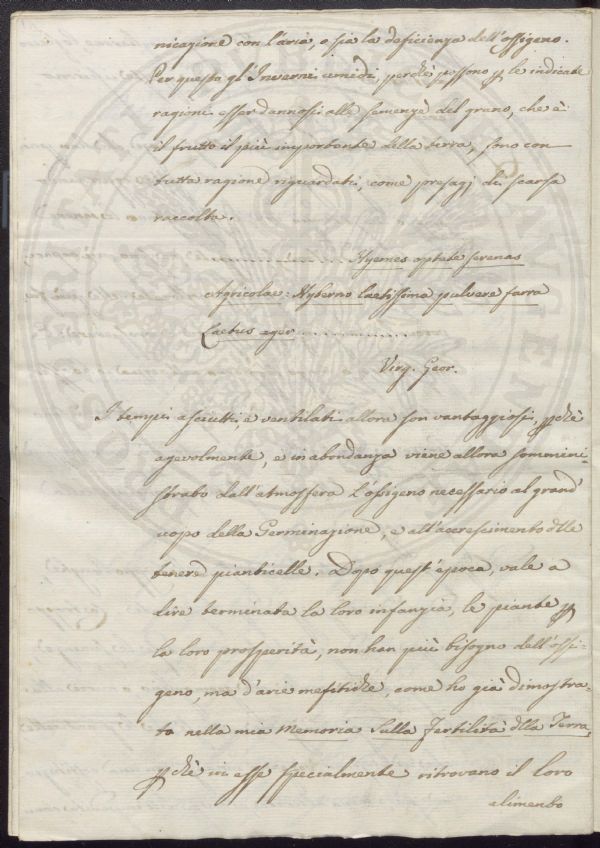 nicazione con l'aria, o sia la deficienza dell'ossigeno.
Per questo gl'Inverni umidi, perchè possono p le indicate
ragioni esser dannosi alle semenze del grano, che è
il frutto il più importante della terra, sono con
tutta ragione riguardati, come presagj di scarsa
raccolta.
Hyemes optate serenas
Agricolae: Hyberno laetissima pulvere farra
Laetus ager..................
Virg. Geor.
I tempi asciutti, e ventilati allora son vantaggiosi, pchè
agevolmente, e in abondanza viene allora sommini-
strato dall'atmosfera l'ossigeno necessario al grand'
uopo della Germinazione, e all'accrescimento dlle
tenere pianticelle. Dopo quest'epoca, vale a
dire terminata la loro infanzia, le piante p
la loro prosperità, non han più bisogno dell'ossi-
geno, ma d'arie mefitiche, come ho già dimostra-
to nella mia Memoria sulla fertilità dlla Terra,
pchè in esse specialmente ritrovano il loro
alimento